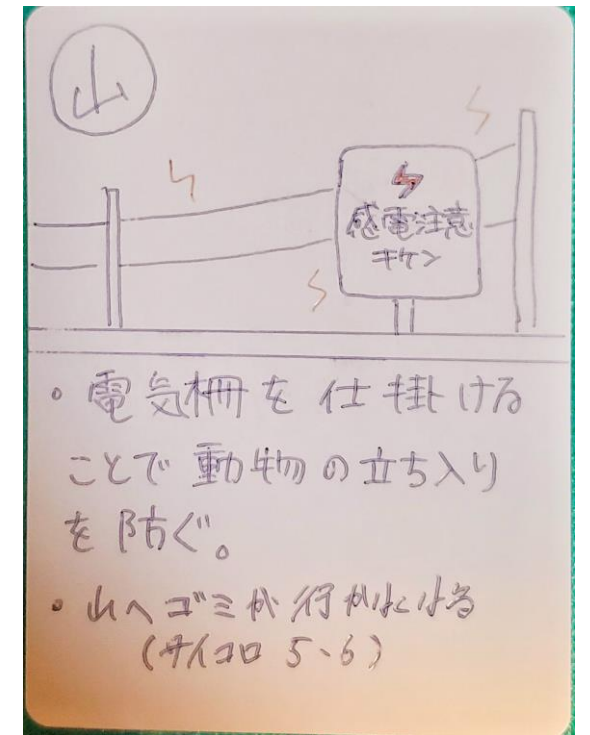 山
感電注意
キケン
・電気柵を仕掛ける
ことで動物の立ち入り
を防ぐ。
・山へゴミが行かなくなる
(サイコロ 5、6)